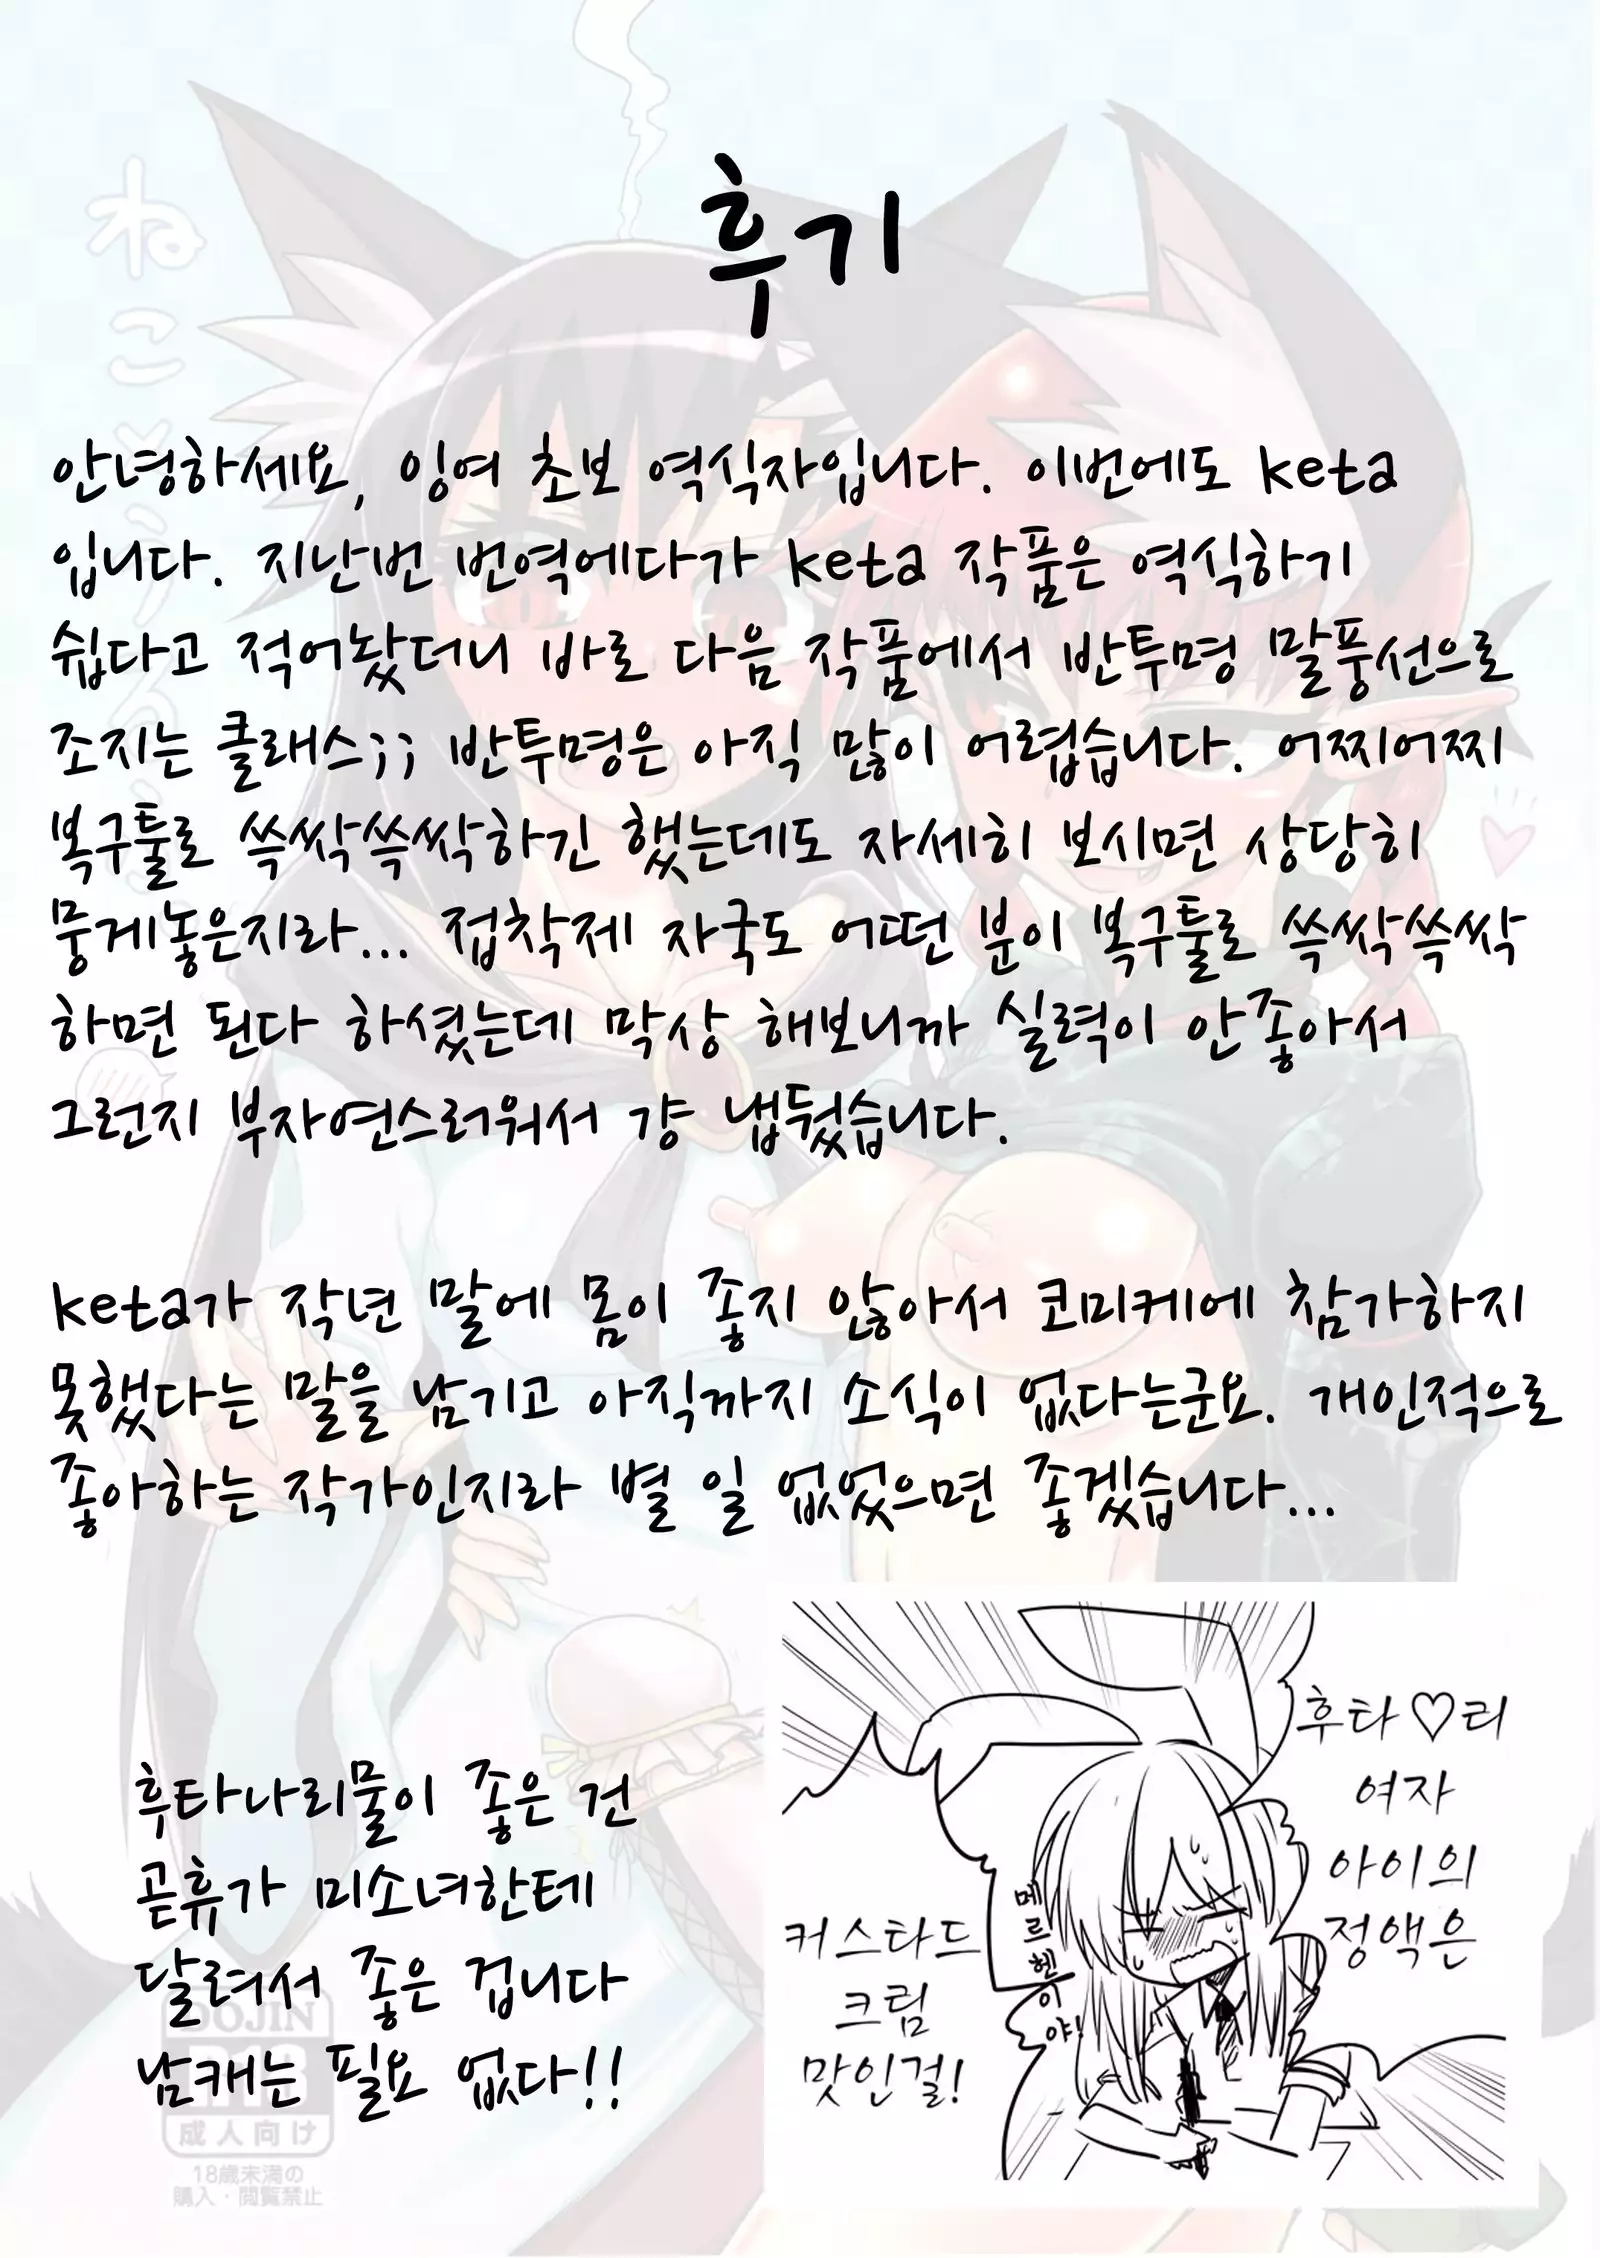 ねこ
후기
안녕하세요, 잉여 초보 역식자입니다. 이번에도 keta
입니다. 지난번 번역에다가 keta 작품은 역식하기
쉽다고 적어놨더니 바로 다음 작품에서 반투명 말풍선으로
조지는 클래스;; 반투명은 아직 많이 어렵습니다. 어찌어찌
복구툴로 쓱싹쓱싹하긴 했는데도 자세히 보시면 상당히
뭉게놓은지라... 접착제 자국도 어떤 분이 복구툴로 쓱싹쓱싹
하면 된다 하셨는데 막상 해보니까 실력이 안좋아서
그런지 부자연스러워서 걍 냅뒀습니다.
keta가 작년 말에 몸이 좋지 않아서 코미케에 참가하지
못했다는 말을 남기고 아직까지 소식이 없다는군요. 개인적으로
좋아하는 작가인지라 별 일 없었으면 좋겠습니다...
후타나리물이 좋은 건
곧휴가 미소녀한테
달려서 좋은 겁니다
남캐는 필요 없다!!
후타♡리
여자
아이의
정액은
메르헨이야!
커스타드
크림
맛인걸!
成人向け
18歳未満の
購入・閲覧禁止